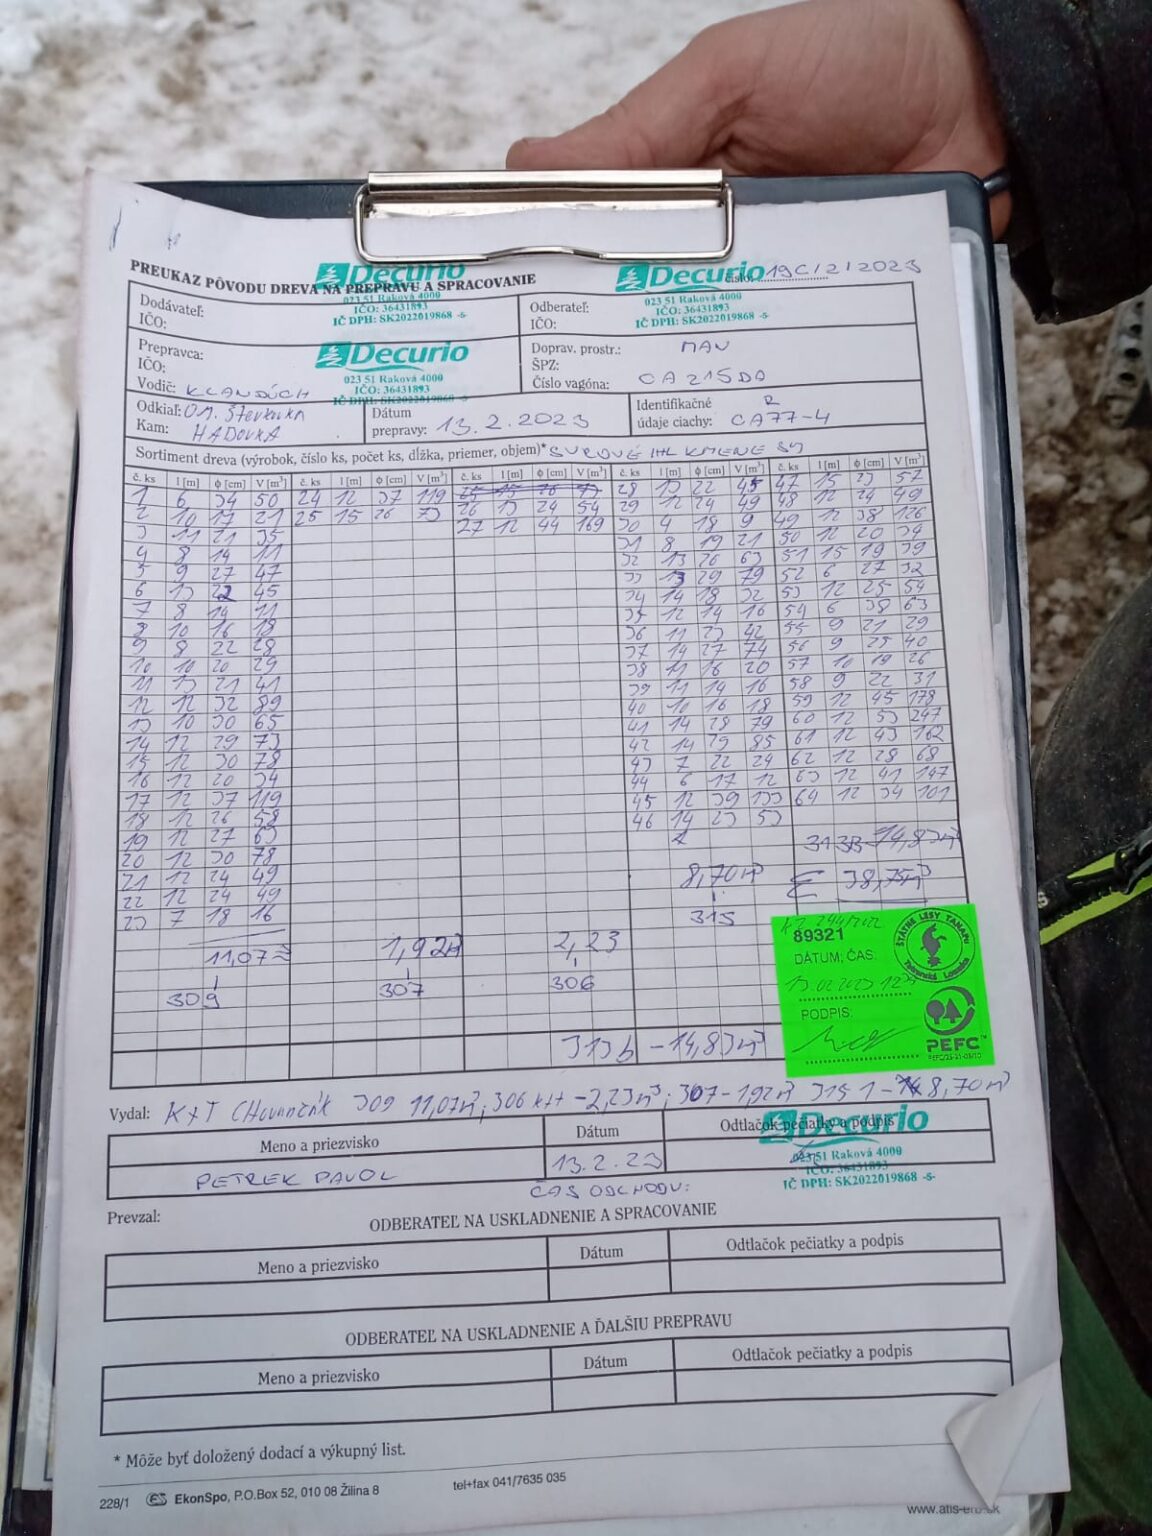 PREUKAZ PÔVODU DREVA NA PREPRAVU A SPRACOVANIE
Decurio
023 51 Raková 4000
IČO: 36431893
IČ DPH: SK2022019868 -5-
Decurio
023 51 Raková 4000
IČO: 36431893
IČ DPH: SK2022019868 -5-
číslo: 19C/2/2023
Dodávateľ:
IČO:
Odberateľ:
IČO:
Prepravca:
IČO:
Decurio
023 51 Raková 4000
IČO: 36431893
IČ DPH: SK2022019868 -5-
Vodič: KLANDÚCH
Doprav. prostr.: MAN
ŠPZ:
Číslo vagóna: CA 215DA
Odkiaľ: OM.
Kam: HADOVKA
Dátum
prepravy: 13.2.2023
Identifikačné
údaje ciachy: CA77-4
R
Sortiment dreva (výrobok, číslo ks, počet ks, dĺžka, priemer, objem)* SUROVÉ IHL KMENE
č. ks l [m] ϕ [cm] V [m³] č. ks l [m] ϕ [cm] V [m³] č. ks l [m] ϕ [cm] V [m³] č. ks l [m] ϕ [cm] V [m³] č. ks l [m] ϕ [cm] V [m³]
1 6 34 50 24 12 37 119 28 13 22 45 47 15 23 57
2 10 17 21 25 15 26 73 26 13 24 54 29 12 24 49 48 12 24 49
3 11 21 35 27 12 44 169 30 4 18 9 49 12 38 126
4 8 14 11 31 8 19 21 50 12 20 34
5 9 27 47 32 13 26 63 51 15 19 39
6 13 22 45 33 13 29 79 52 6 27 32
7 8 14 11 34 14 18 32 53 12 25 54
8 10 16 18 35 12 14 16 54 6 38 63
9 8 22 28 36 11 23 42 55 9 21 29
10 10 20 29 37 14 27 74 56 9 25 40
11 13 21 41 38 11 16 20 57 10 19 26
12 12 32 89 39 11 14 16 58 9 22 31
13 10 30 65 40 10 16 18 59 12 45 178
14 12 29 73 41 14 28 79 60 12 53 247
15 12 30 78 42 14 29 85 61 12 43 162
16 12 20 34 43 7 22 24 62 12 28 68
17 12 37 119 44 6 17 12 63 12 41 147
18 12 26 58 45 12 39 133 64 12 34 101
19 12 27 63 46 14 23 53
20 12 30 78
21 12 24 49
22 12 24 49
23 7 18 16
14,83m³
8,70m³ Σ 38,75m³
315
11,07 1,92m³ 2,23
309 307 306
313b - 14,83m³
89321
DÁTUM; ČAS:
PODPIS:
ŠTÁTNE LESY TANAPU
Tatranská Lomnica
PEFC™
Vydal: K+T 309 11,07m³; 306 - 2,23m³; 307 - 1,92m³ 315 8,70m³
Meno a priezvisko
Dátum
Odtlačok pečiatky a podpis
Decurio
023 51 Raková 4000
IČO: 36431893
IČ DPH: SK2022019868 -5-
PETREK PAVOL
13.2.23
ČAS ODCHODU:
Prevzal:
ODBERATEĽ NA USKLADNENIE A SPRACOVANIE
Meno a priezvisko
Dátum
Odtlačok pečiatky a podpis
ODBERATEĽ NA USKLADNENIE A ĎALŠIU PREPRAVU
Meno a priezvisko
Dátum
Odtlačok pečiatky a podpis
* Môže byť doložený dodací a výkupný list.
228/1 EkonSpo, P.O.Box 52, 010 08 Žilina 8
tel+fax 041/7635 035